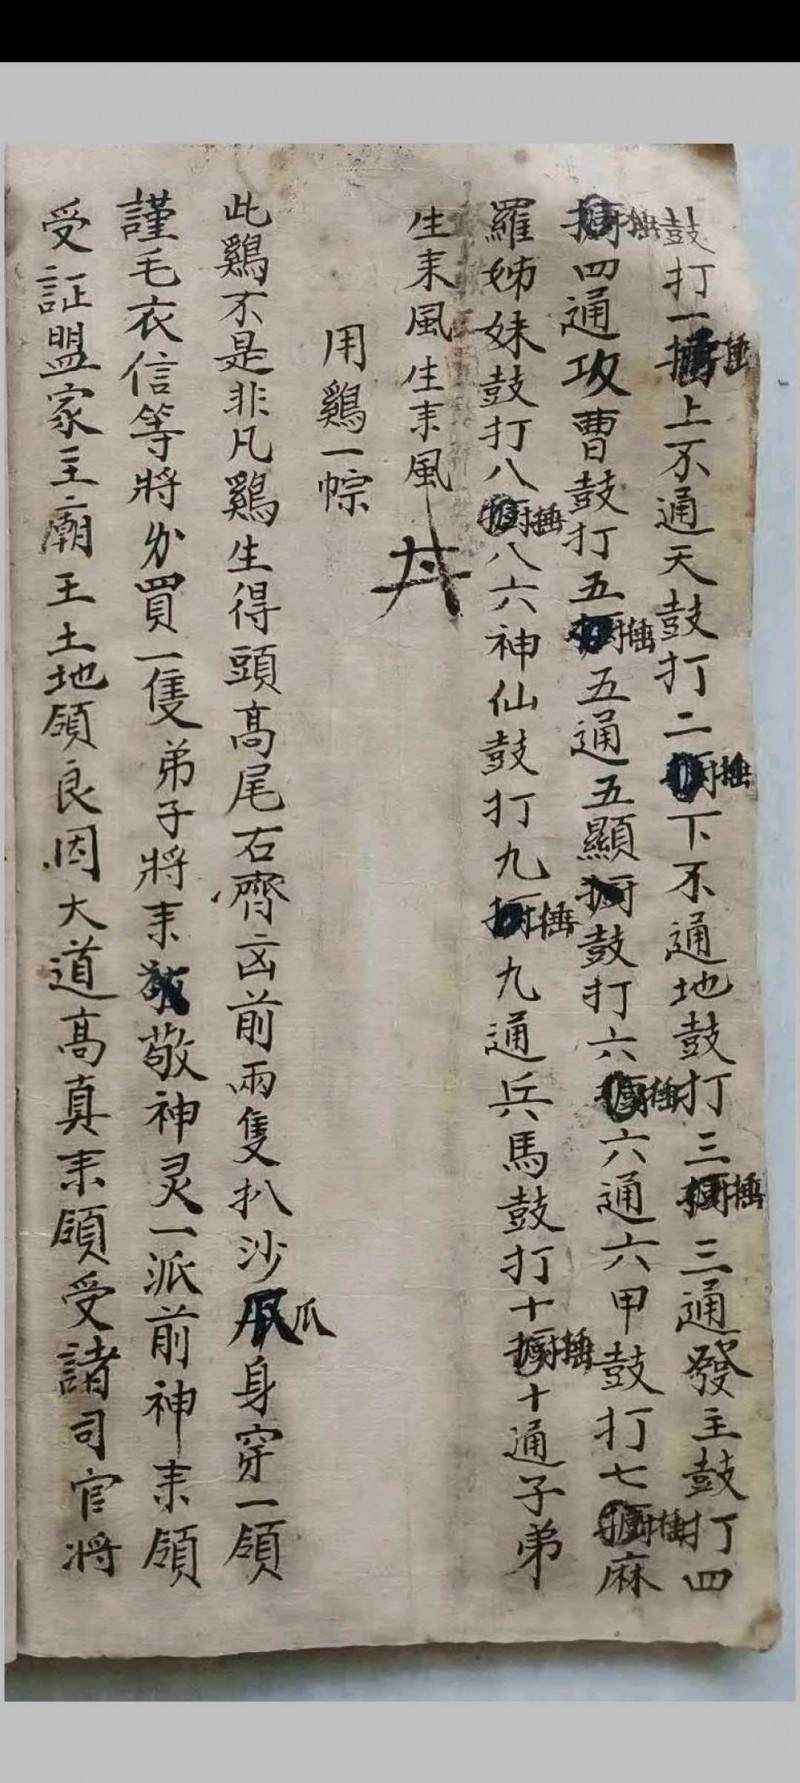 鼓打一捶上不通天鼓打二捶下不通地鼓打三捶三通發主鼓打四
捶四通攻曹鼓打五捶五通五顯鼓打六捶六通六甲鼓打七捶麻
羅姊妹鼓打八捶八六神仙鼓打九捶九通兵馬鼓打十捶十通子弟
生耒風生耒風
用鷄一悰
此鷄不是非凡鷄生得頭高尾右齊㐫前兩隻扒沙爪身穿一領
謹毛衣信等將分買一隻弟子將耒敬神灵一派前神耒領
受証盟家主廟王土地領良因大道高真耒領受諸司官将